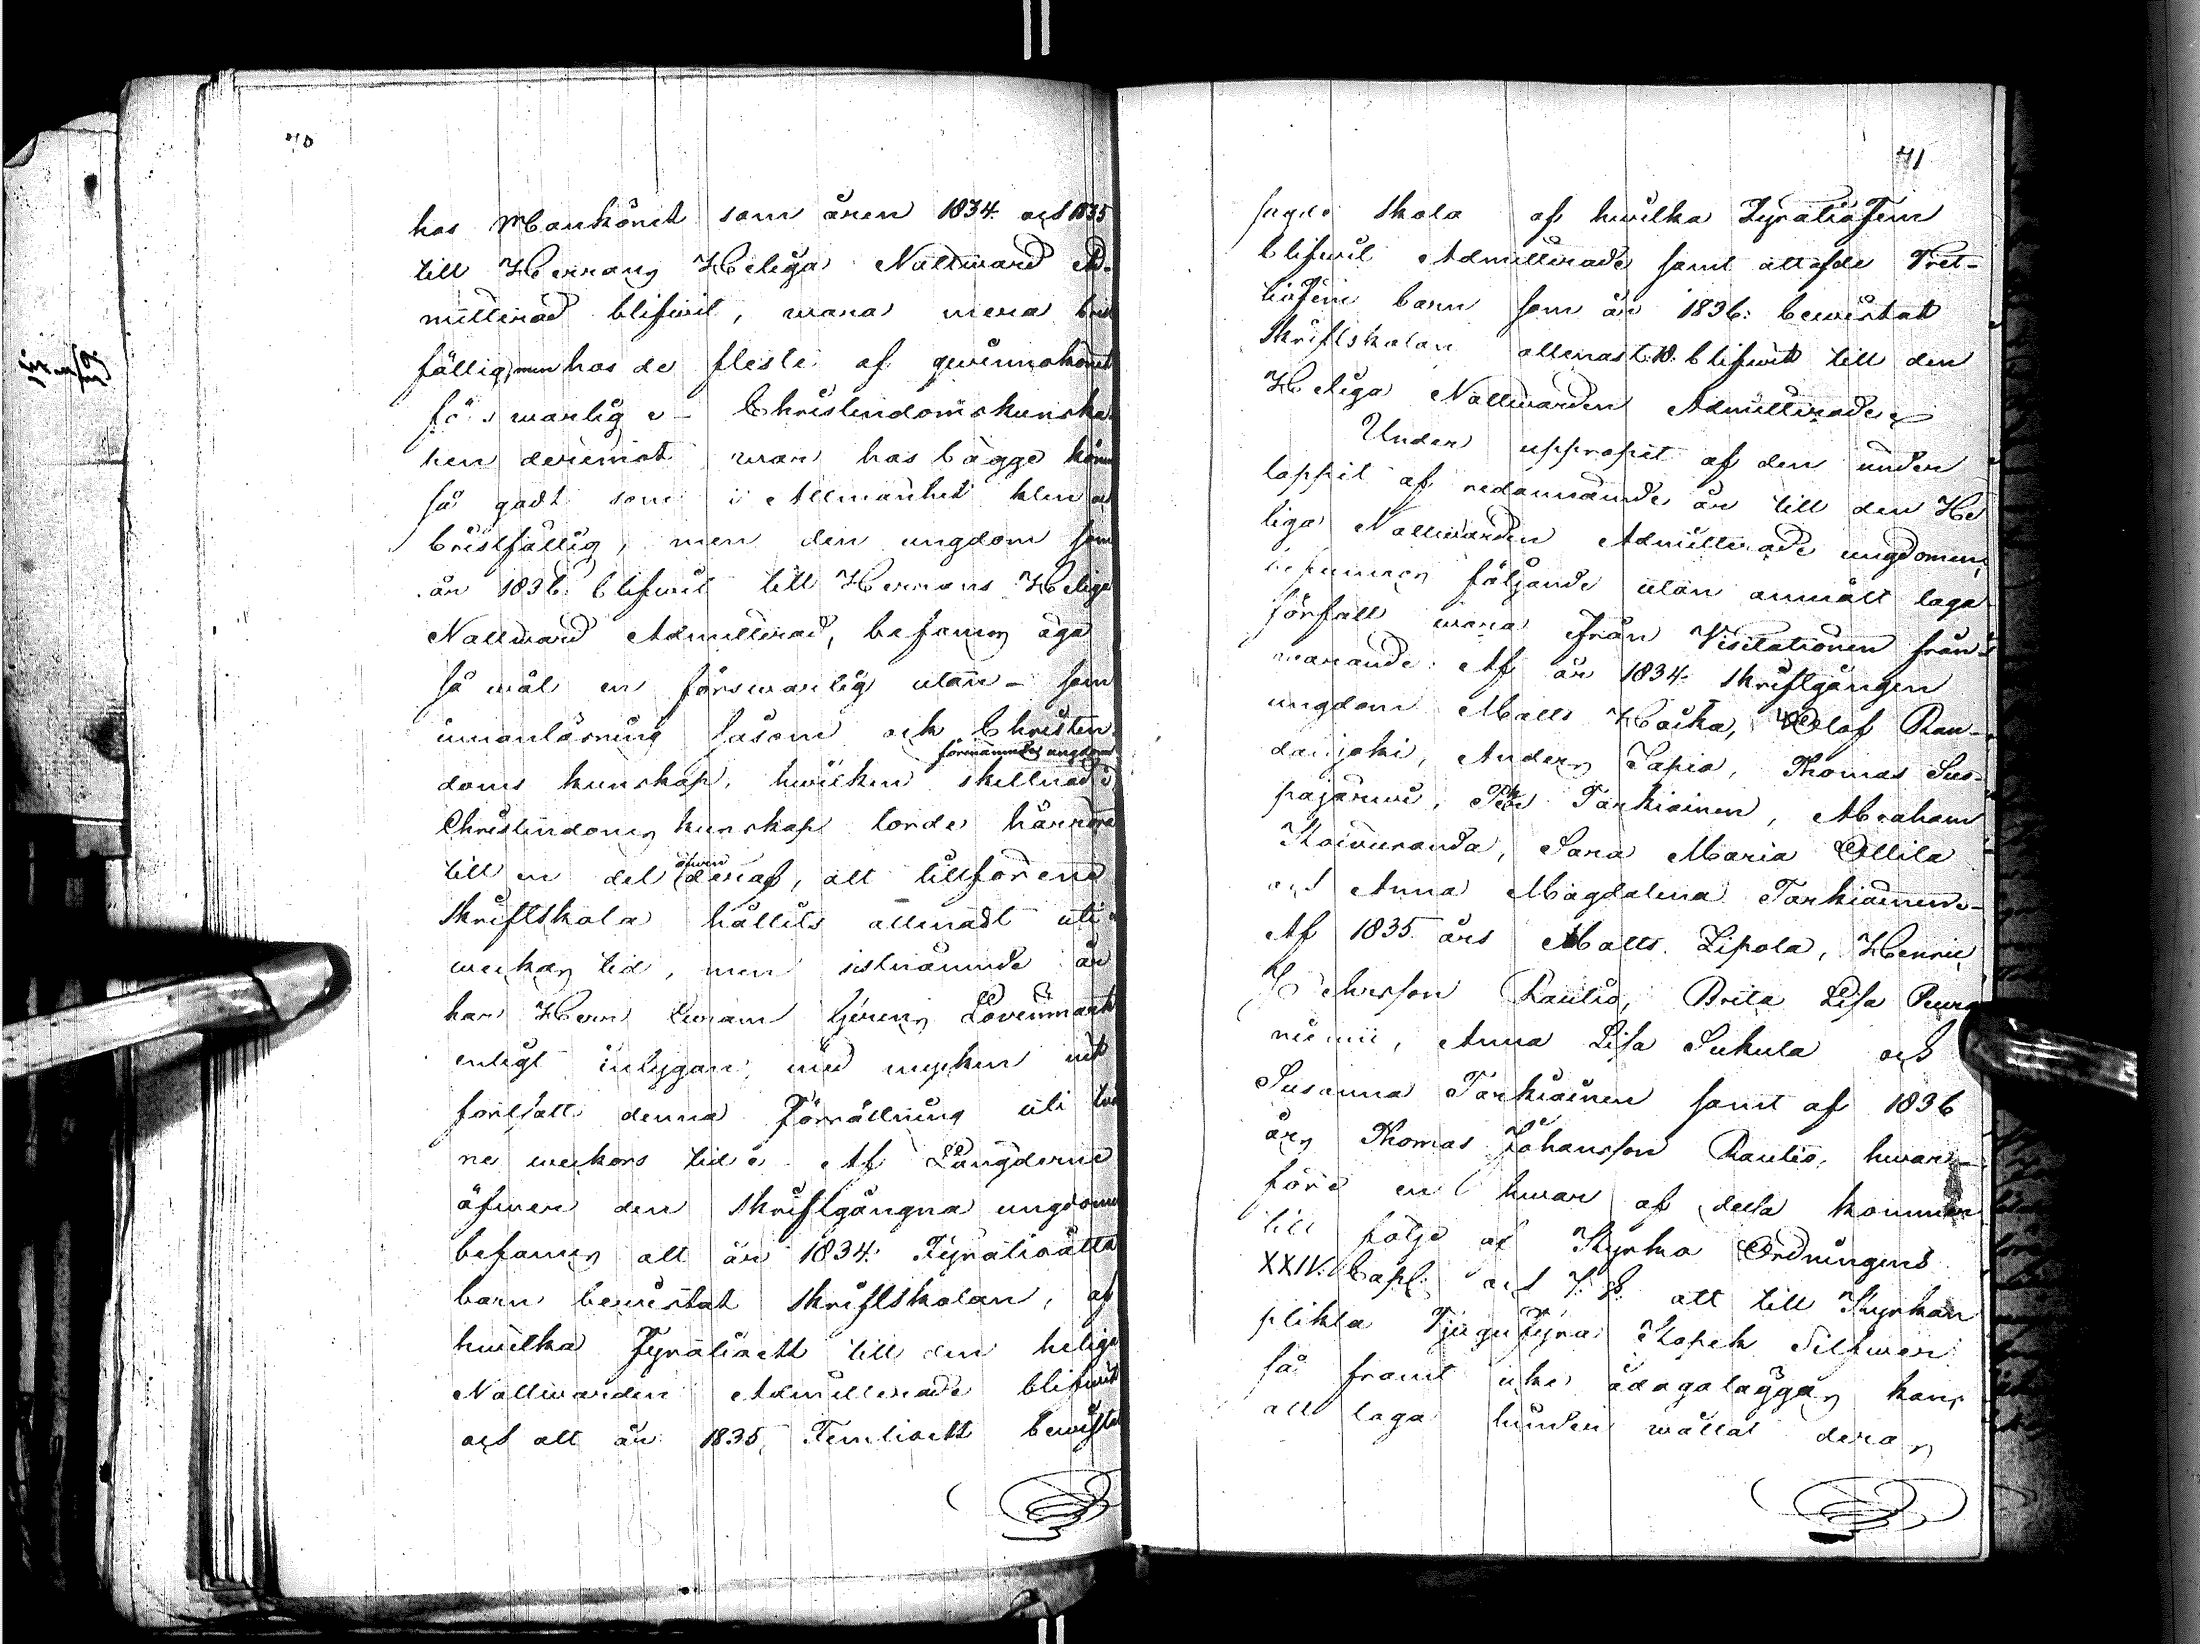 40
hos Mankönet som åren 1834 och 1835
till Herrans Heliga Nattward Ad-
mitterad blifwit, wara mera brist
fällig, men hos de fleste af qwinnokönet
förswarlig - Christendomskunska
pen deremot war hos bägge könen
så godt som i Allmänhet klen och
bristfällig, men den ungdom som
år 1836 blifwit till Herrans Heliga
Nattward Admitterad, befanns äga
så wäl en förswarlig utan- som
innanläsning såsom ock Christen
förenämndes ungdoms
doms kunskap, hwilken skillnad i
Christendoms kunskap torde härröra
till en del äfwen deraf, att tillförene
Skriftskola hållits allenast uti
weckas tid, men sistnämnde år
har Herr Löwenmark
enligt med mycken nit
fortsatt denna Förrättning uti två
ne weckors tid. Af Längderne
öfwer den Skriftgångna ungdomen
befanns att år 1834 Fyratioåtta
barn bewistat Skriftskolan, af
hwilka Fyratioett till den heliga
Nattwarden Admitterade blifwit
och att år 1835 Femtioett bewistat
41
sagde Skola af hwilka Fyratiofem
blifwit Admitterade samt att af de Tret-
tiofem barn som år 1836 bewistat
Skriftskolan allenast 18 blifwit till den
Heliga Nattwarden Admitterade
Under uppropet af den under
loppet af redannämnde år till den He
liga Nattwarden Admitterade ungdomen,
befunnos följande utan anmält laga
förfall wara från Visitationen från-
warande: Af år 1834 Skriftgången
ungdom Matts Hacka, Olof Ran-
danjoki, Anders Tapio, Thomas Suo-
pajärwi, Pehr Tarkiainen, Abraham
Koivuranda, Sara Maria Ollila
och Anna Magdalena Tarkiainen-
Af 1835 års Matts Lipola, Henric
Pehrsson Rautio, Brita Lisa Peura
niemi, Anna Lisa Sukula och
Susanna Tarkiainen samt af 1836
års Thomas Johansson Rautio, hwar-
före en hwar af dessa kommer
till följe af Kyrko Ordningens
XXIV. Cap. och 7. §. att till Kyrkan
plikta Tjugufyra Kopek Silfwer
så framt icke ådagalägges kan,
att laga hinder wållat deras